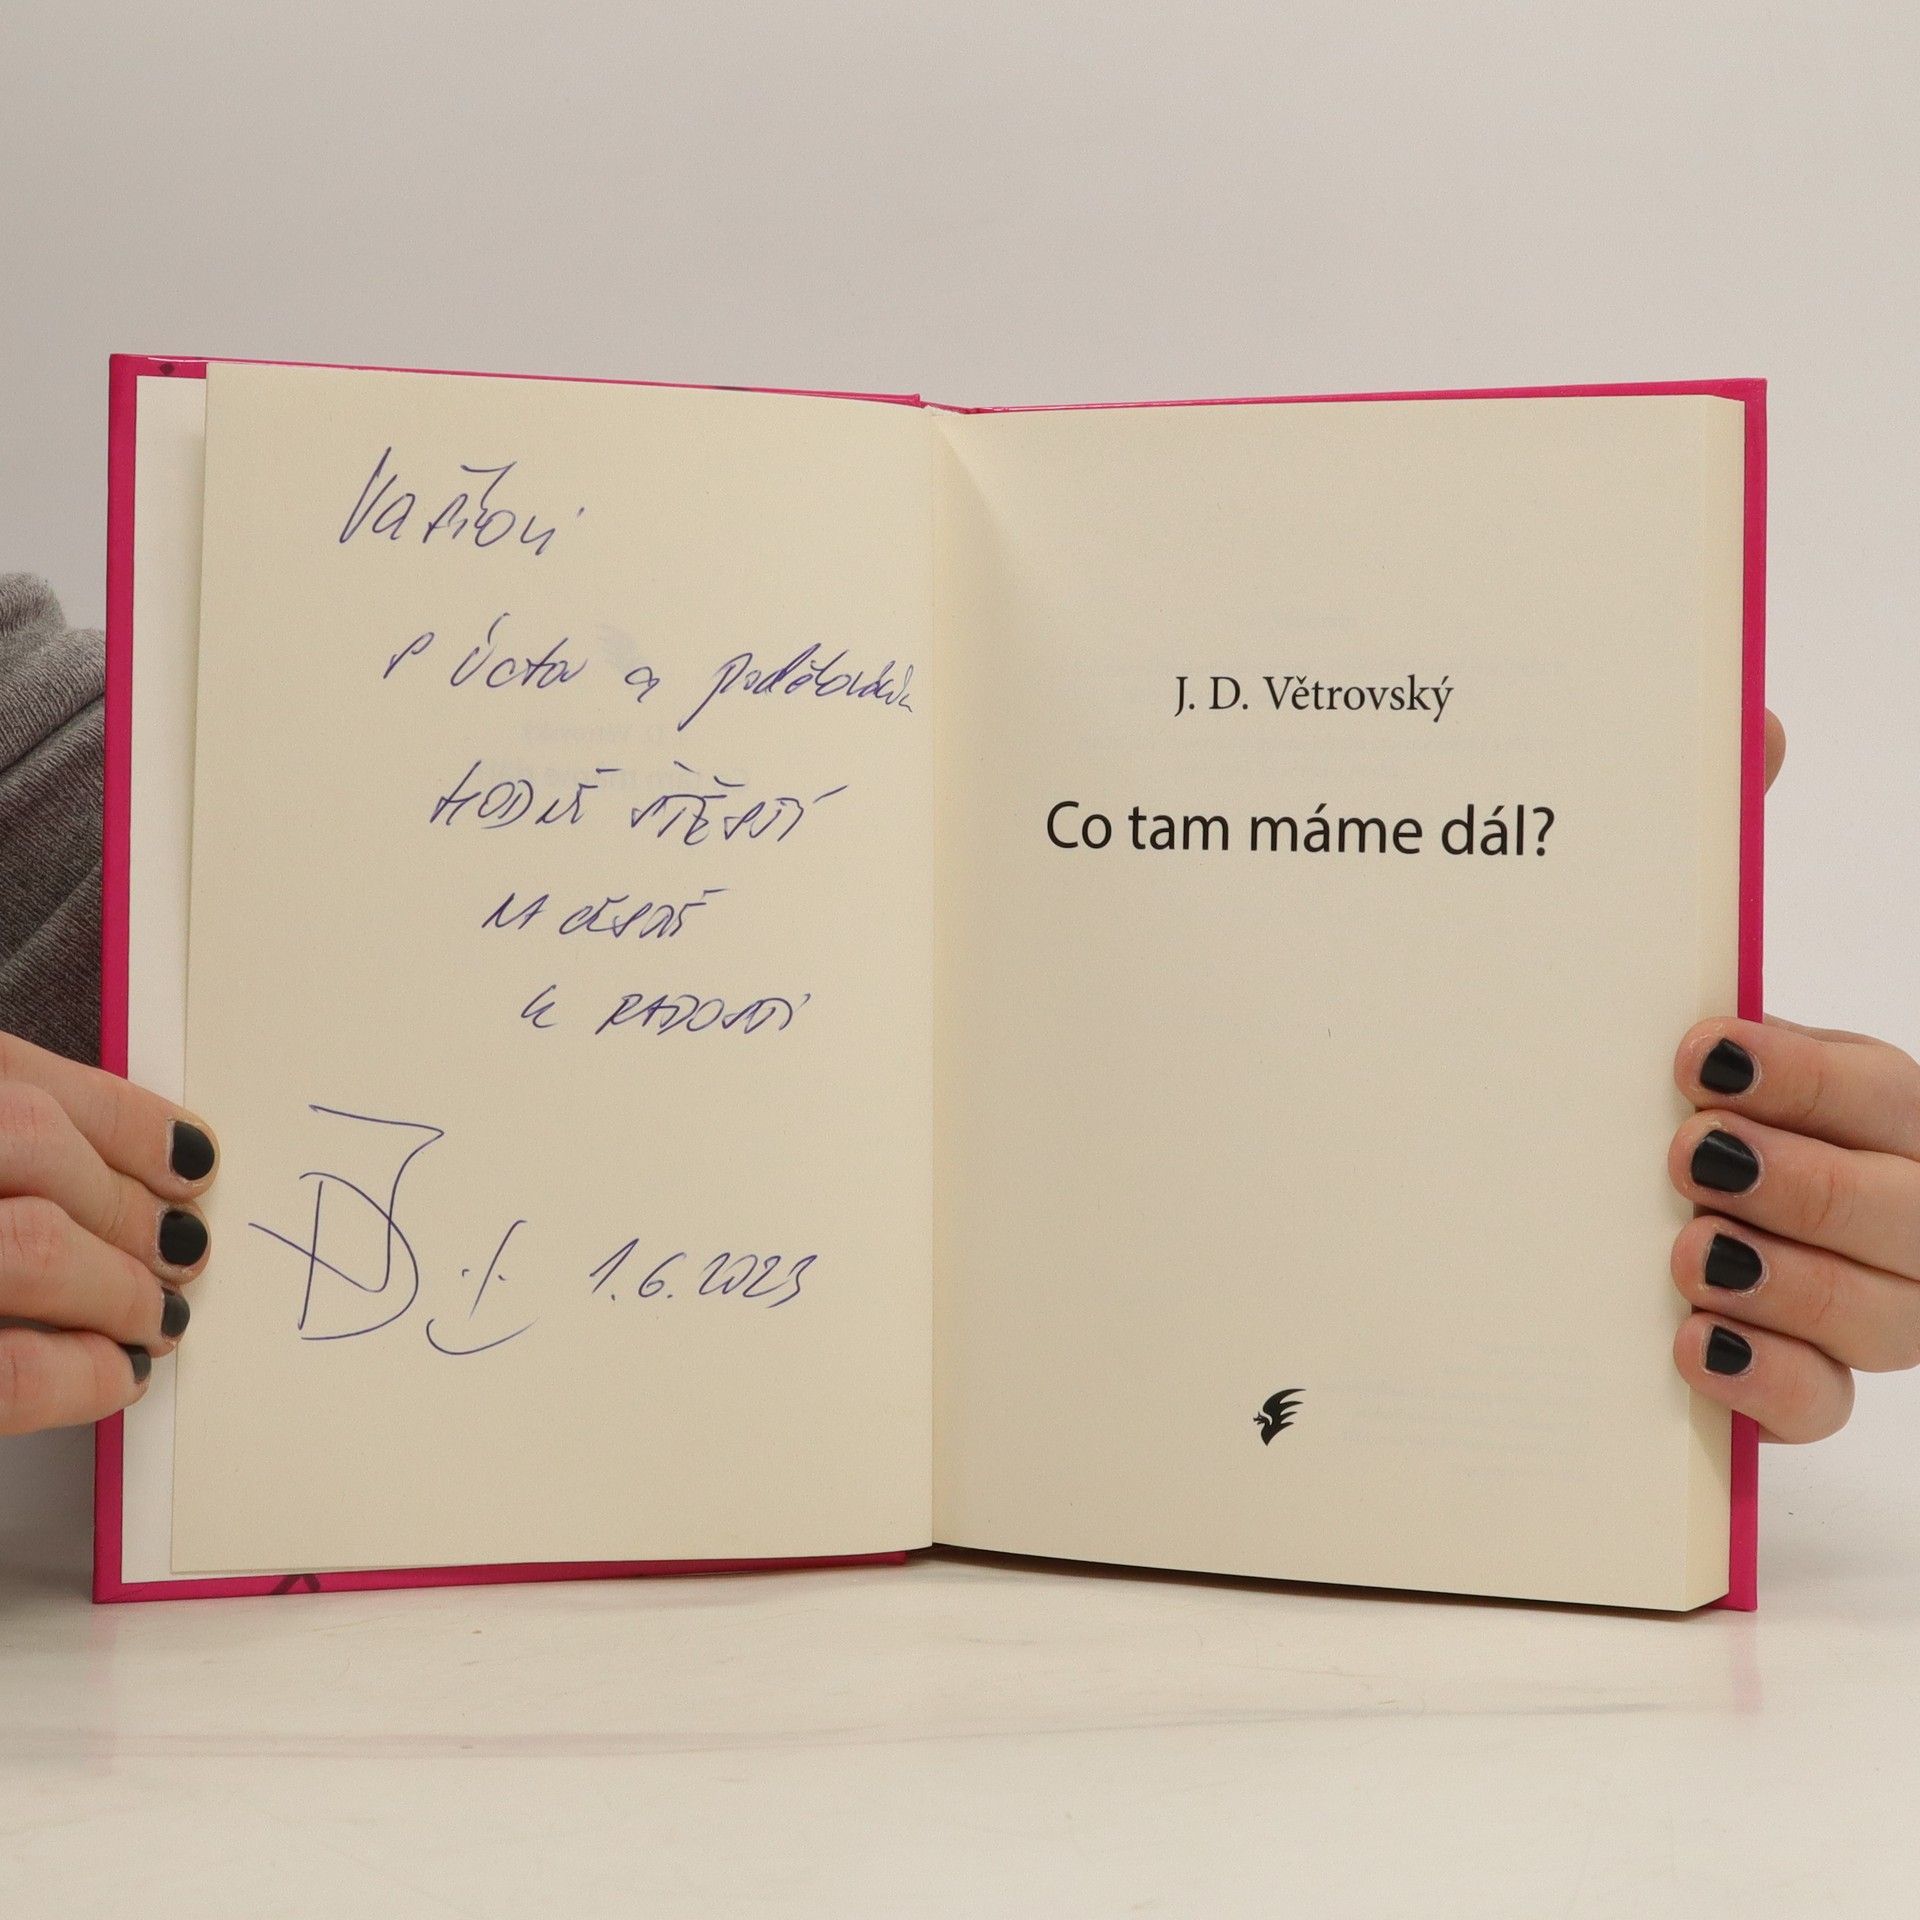 Vaškovi
s úctou a poděkováním
HODNĚ ŠTĚSTÍ
NA CESTĚ
K RADOSTI
1.6.2023
J. D. Větrovský
Co tam máme dál?